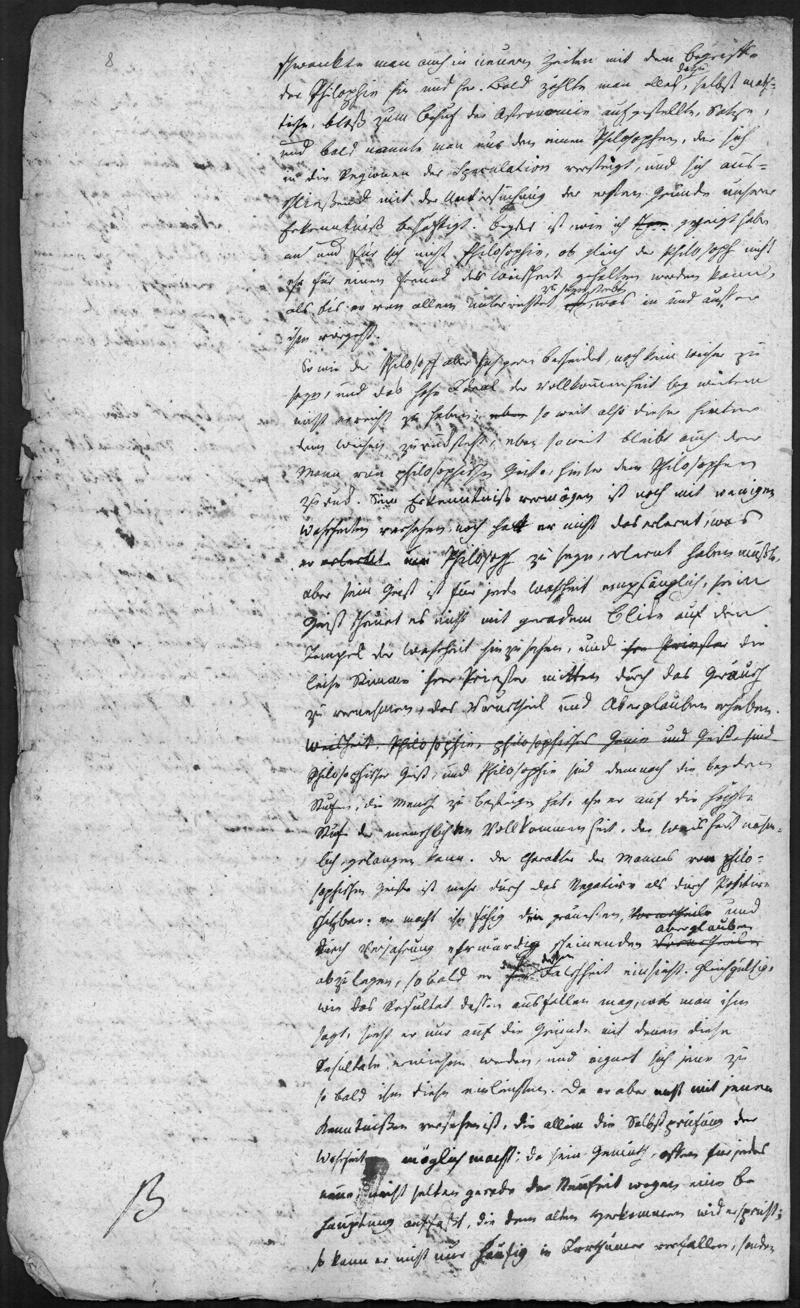 8
schwankte man auch in neuern Zeiten mit dem Begriffe
der Philosophie hin und her. Bald zählte man alles dazu, selbst
bloß zum Behuf der Astronomie aufgestellte, Sätze,
und bald nannte man nur den einen Philosophen, der sich
in die Regionen der Speculation versteigt, und sich aus-
schließend mit der Untersuchung der ersten Gründe unserer
Erkenntniß beschäftigt. Beydes ist, wie ich gezeigt habe
an und für sich nicht Philosophie, ob gleich der Philosoph nicht
ehe für einen Freund der Weisheit gehalten werden kann,
als bis er von allem unterrichtet zu seyn strebt, was in und außer
ihm vorgeht.
So wie der Philosoph aber sich gern bescheidet, noch kein Weiser zu
seyn, und das hohe Ideal der Vollkommenheit bey weitem
nicht erreicht zu haben; so weit also dieser hinter
dem Weisen zurücksteht, eben so weit bleibt auch der
Mann von philosophischem Geiste, hinter dem Philosophen
zurück. Sein Erkenntnißvermögen ist noch mit wenigen
Wahrheiten versehen, noch hat er nicht das erlernt, was
er um Philosoph zu seyn, erlernt haben müßte,
aber sein Geist ist für jede Wahrheit empfänglich, sein
Geist scheuet es nicht mit geradem Blicke auf den
Tempel der Wahrheit hinzusehen, und die
leise Stimme ihrer Priester mitten durch das Geräusch
zu vernehmen, das Vorurtheil und Aberglauben erheben.
Weisheit, Philosophie, philosophisches Genie und Geist, sind
Philosophischer Geist, und Philosophie sind demnach die beyden
Stufen, die Mensch zu besteigen hat, ehe er auf die höchste
Stufe der menschlichen Vollkommenheit, der Weisheit nähm-
lich, gelangen kann. Der Charakter des Mannes von philo-
sophischem Geiste ist mehr durch das Negative als durch Positive
: er macht ihn fähig den grauesten, Vorurtheile und
durch Verjährung ehrwürdig scheinenden Aberglauben
abzulegen, so bald er dessen Falschheit einsieht. Gleichgültig,
wie das Resultat dessen ausfallen mag, was man ihm
sagt, sieht er nur auf die Gründe mit denen diese
Resultate erwiesen werden, und eignet sich jene zu
so bald ihm diese einleuchten. Da er aber nicht mit jenen
Kenntnißen versehen ist, die allein die Selbstprüfung der
Wahrheit möglich macht; da sein Gemüth, offen für jedes
neue, nicht selten gerade der Neuheit wegen eine Be
hauptung auffaßt, die dem alten Herkommen widerspricht;
so kann er nicht nur häufig in Irrthümer verfallen, sondern
B